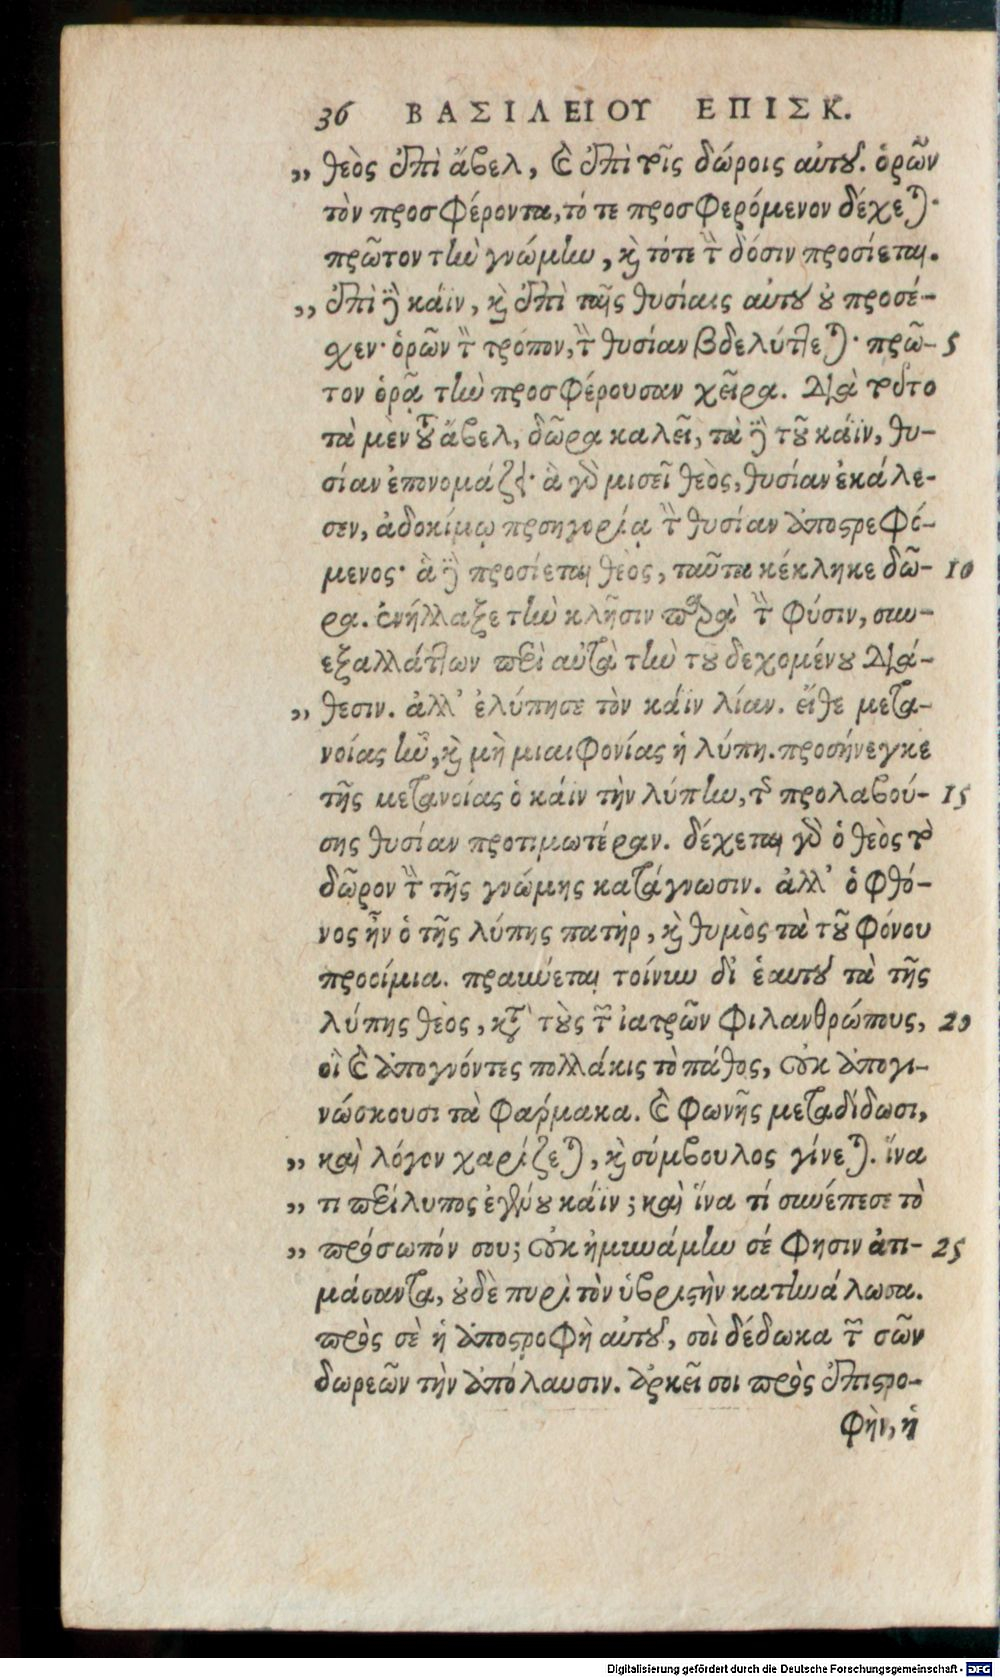 36 ΒΑΣΙΛΕΙΟΥ ΕΠΙΣΚ.
„ θεὸς ἐπὶ ἄβελ, καὶ ἐπὶ τοῖς δώροις αὐτοῦ. ὁρῶν
τὸν προσφέροντα, τό τε προσφερόμενον δέχεται·
πρῶτον τὴν γνώμην, καὶ τότε τὴν δόσιν προσίεται.
„ ἐπὶ δὲ κάϊν, καὶ ἐπὶ ταῖς θυσίαις αὐτοῦ οὐ προσέ-
χεν· ὁρῶν τὸν τρόπον, τὴν θυσίαν βδελύττεται· πρῶ- 5
τον ὁρᾷ τὴν προσφέρουσαν χεῖρα. διὰ τοῦτο
τὰ μὲν τοῦ ἄβελ, δῶρα καλεῖ, τὰ δὲ τοῦ κάϊν, θυ-
σίαν ἐπονομάζει· ἃ γὰρ μισεῖ θεὸς, θυσίαν ἐκάλε-
σεν, ἀδοκίμῳ προσηγορίᾳ τὴν θυσίαν ἀποστρεφό-
μενος· ἃ δὲ προσίεται θεὸς, ταῦτα κέκληκε δῶ- 10
ρα. ἐνήλλαξε τὴν κλῆσιν παρὰ τὴν φύσιν, συν-
εξαλλάττων περὶ αὐτὰ τὴν τοῦ δεχομένου διά-
„ θεσιν. ἀλλ' ἐλύπησε τὸν κάϊν λίαν. εἴθε μετα-
νοίας ἦν, καὶ μὴ μιαιφονίας ἡ λύπη. προσήνεγκε
τῆς μετανοίας ὁ κάϊν τὴν λύπην, τῆς προλαβού- 15
σης θυσίαν προτιμωτέραν. δέχεται γὰρ ὁ θεὸς τὸ
δῶρον τὴν τῆς γνώμης κατάγνωσιν. ἀλλ' ὁ φθό-
νος ἦν ὁ τῆς λύπης πατὴρ, καὶ θυμὸς τὰ τοῦ φόνου
προοίμια. πραΰνεται τοίνυν δι' ἑαυτοῦ τὰ τῆς
λύπης θεὸς, κατὰ τοὺς τῶν ἰατρῶν φιλανθρώπους, 20
οἳ καὶ ἀπογνόντες πολλάκις τὸ πάθος, οὐκ ἀπογι-
νώσκουσι τὰ φάρμακα. καὶ φωνῆς μεταδίδωσι,
„ καὶ λόγον χαρίζεται, καὶ σύμβουλος γίνεται. ἵνα
„ τι περίλυπος ἐγένου κάϊν; καὶ ἵνα τί συνέπεσε τὸ
„ πρόσωπόν σου; οὐκ ἠμυνάμην σέ φησιν ἀτι- 25
μάσαντα, οὐδὲ πυρὶ τὸν ὑβριστὴν κατηνάλωσα.
πρὸς σὲ ἡ ἀποστροφὴ αὐτοῦ, σοὶ δέδωκα τῶν σῶν
δωρεῶν τὴν ἀπόλαυσιν. ἀρκεῖ σοι πρὸς ἐπιστρο-
φὴν, ἡ
Digitalisierung gefördert durch die Deutsche Forschungsgemeinschaft - DFG